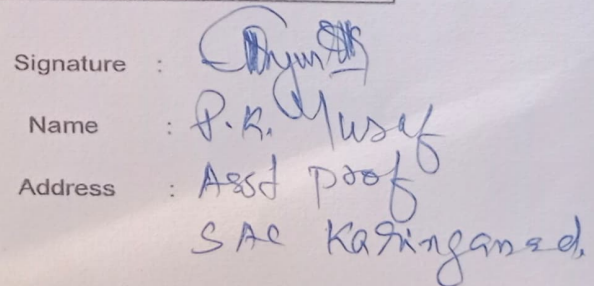 Signature :
Name : P.K. Yusaf
Address : Asst prof
SAC Karinganad.